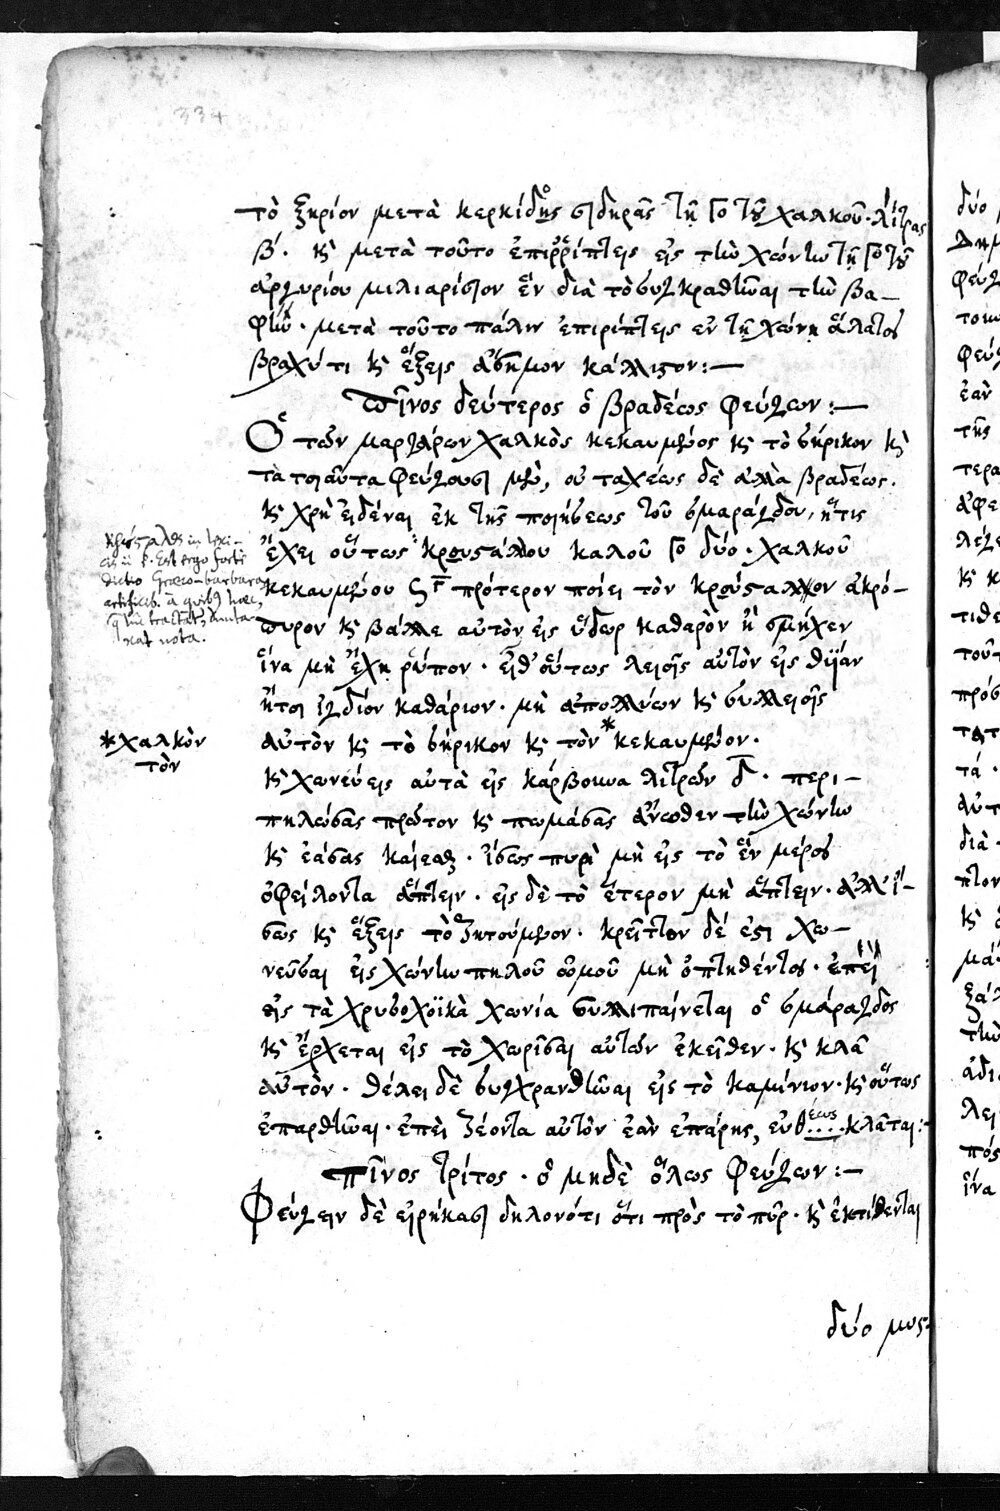 334
τὸ ξηρίον μετὰ κερκίδος σιδηρᾶς τῇ Γο τοῦ χαλκοῦ · λίτρας
β΄. κ̀ μετὰ τοῦτο ἐπιῤῥίπτεις εἰς τὴν χώνην τῇ Γο τοῦ
ἀργυρίου μιλιαρίσιον ἓν διὰ τὸ συγκραθῆναι τὴν βα–
φήν · μετὰ τοῦτο πάλιν ἐπιρίπτεις ἐν τῇ χώνῃ ἅλατος
βραχύ τι κ̀ ἕξεις ἄσημον κάλλιστον :—
Πῖνος δεύτερος ὁ βραδέως φεύγων :—
Ὁ τῶν μαργάρων χαλκὸς κεκαυμένος κ̀ τὸ σήρικον κ̀
τὰ τοιαῦτα φεύγουσι μὲν, οὐ ταχέως δὲ ἀλλὰ βραδέως.
κ̀ χρὴ εἰδέναι ἐκ τῆς ποιήσεως τοῦ σμαράγδου, ἥτις
ἔχει οὕτως · κρουστάλλου καλοῦ Γο δύο · χαλκοῦ
κεκαυμένου πρότερον ποίει τὸν κρούσταλλον ἀκρό–
πυρον κ̀ βάλλε αὐτὸν εἰς ὕδωρ καθαρὸν ἢ σμῆχεν
ἵνα μὴ ἔχῃ ῥύπον · εἶθ' οὕτως λειοῖς αὐτὸν εἰς θυΐαν
ἤτοι ἰγδίον καθάριον · μὴ ἀπολλύων κ̀ συλλειοῖς
αὐτὸν κ̀ τὸ σήρικον κ̀ τὸν * κεκαυμένον.
κ̀ χωνεύεις αὐτὰ εἰς κάρβουνα λιτρῶν δ̅ · περι–
πηλώσας πρῶτον κ̀ πωμάσας ἄνωθεν τὴν χώνην
κ̀ ἐάσας καίεσθαι · ἴσως πυρὶ μὴ εἰς τὸ ἓν μέρος
ὀφείλοντα ἅπτειν · εἰς δὲ τὸ ἕτερον μὴ ἅπτειν · ἀλλ' ἴ–
σως κ̀ ἕξεις τὸ ζητούμενον · κρεῖττον δέ ἐστι χω–
νεῦσαι εἰς χώνην πηλοῦ ὠμοῦ μὴ ὀπτηθέντος · ἐπεὶ
εἰς τὰ χρυσοχοϊκὰ χωνία συλλιπαίνεται ὁ σμάραγδος
κ̀ ἔρχεται εἰς τὸ χωρῖσαι αὐτὸν ἐκεῖθεν · κ̀ κλᾶ
αὐτόν · θέλει δὲ συγχρανθῆναι εἰς τὸ καμίνιον · κ̀ οὕτως
ἐπαρθῆναι · ἐπεὶ ζέοντα αὐτὸν ἐὰν ἐπάρῃς, εὐθέως κλᾶται :–
Πῖνος τρίτος · ὁ μηδὲ ὅλως φεύγων :—
Φεύγειν δὲ εἰρήκασι δηλονότι ὅτι πρὸς τὸ πῦρ · κ̀ ἐκτίθενται
δύο μυς
Est ergo forte
dictio Græco-barbara
artifib. a quibus hæc,
nota.
* χαλκὸν
τὸν